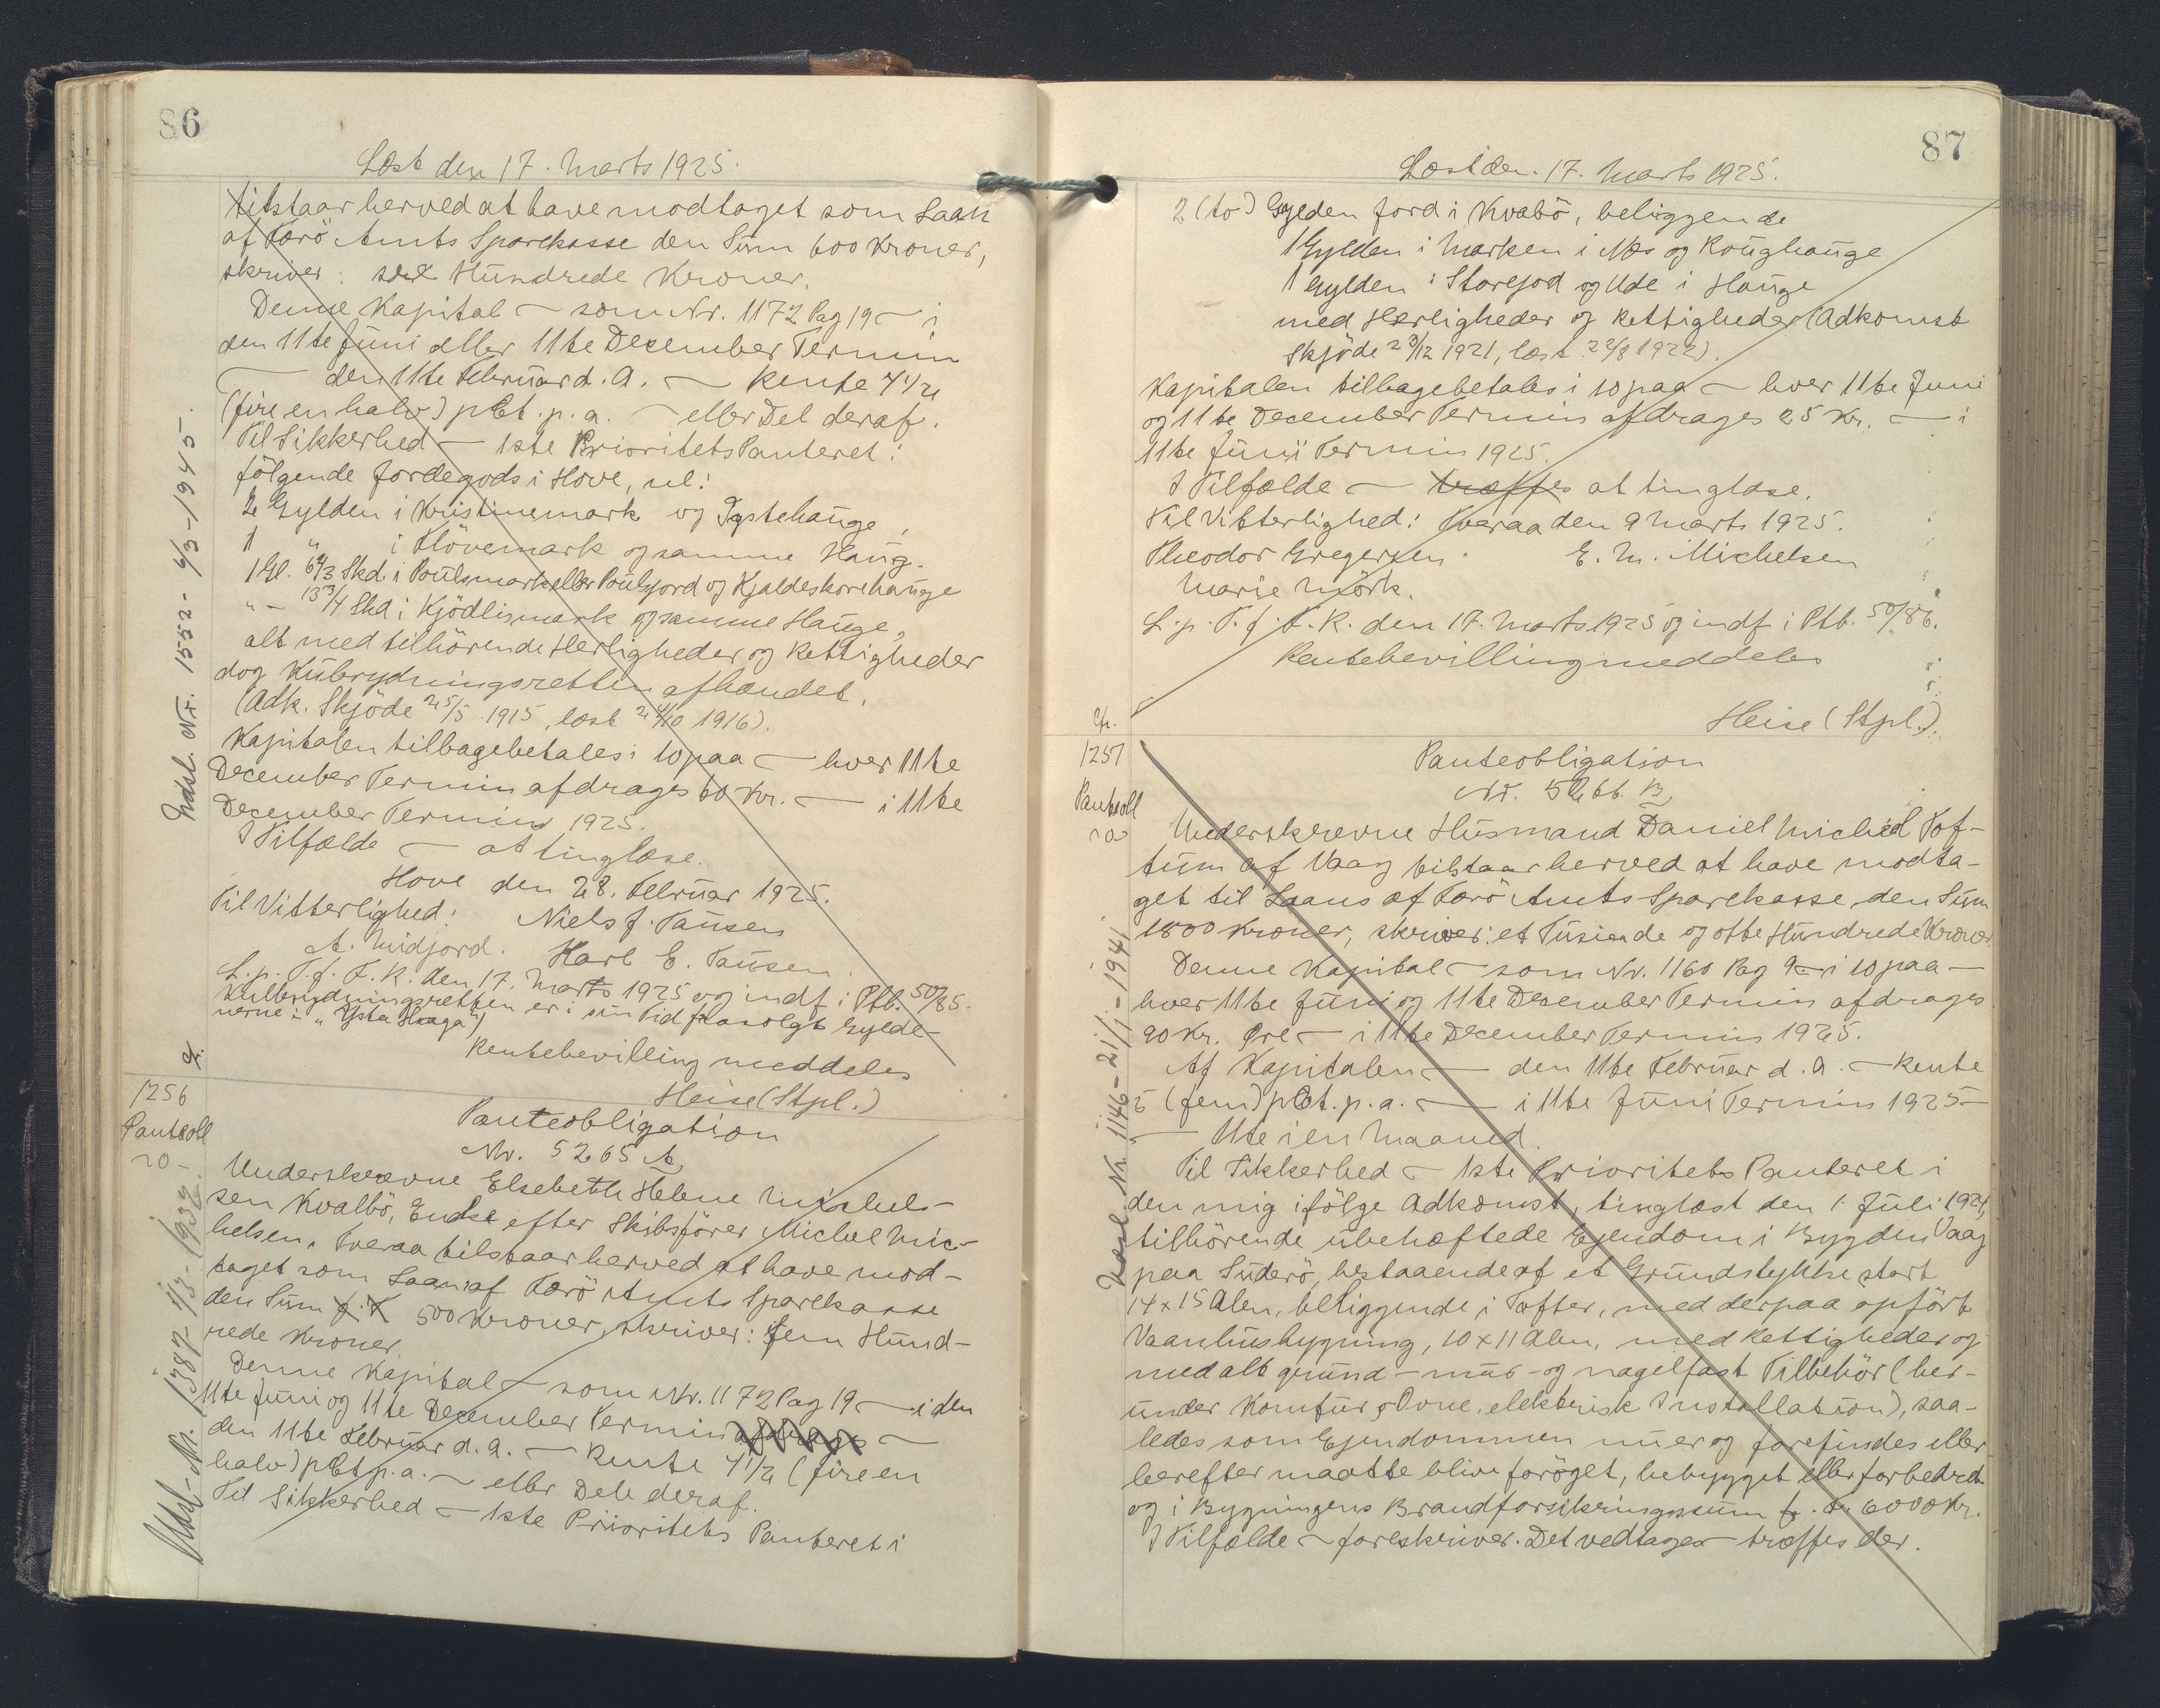 86
Læst den 17. Marts 1925.
tilstaar herved at have modtaget som Laan
af Færö Amts Sparekasse den Sum 600 Kroner,
skriver: sex Hundrede Kroner.
Denne Kapital — som Nr. 1172 Pag 19 — i
den 11te Juni eller 11te December Termin
— den 11te Februar d. A. — Rente 4 1/2
(fire en halv) pCt. p. a. — eller Del deraf.
Til Sikkerhed — 1ste Prioritets Panteret i
følgende Jordegods i Hove, nl:
2 Gylden i Kristinemark og Tystehauge,
1 " i Hövemark og samme Haug.
1 Gl. 6 2/3 Skd. i Poulsmark eller Poulsjord og Kjaldeskorehauge
" — 13 3/4 Skd i Kjödlismark og samme Hauge,
alt med tilhörende Herligheder og Rettigheder
dog Kulbrydningsretten afhændet.
(Adk. Skjöde 25/5 1915, læst 24/10 1916).
Kapitalen tilbagebetales i 10 paa — hver 11te
December Termin afdrages 60 Kr. — i 11te
December Termin 1925.
I Tilfælde — at tinglæse.
Hove den 28. Februar 1925.
Til Vitterlighed: Niels J. Pausen
A. Midjord. Karl E. Pausen.
L. p. T. f. F. R. den 17. Marts 1925 og indf i Ptb. 50/85.
Kulbrydningsretten er i sin Tid frasolgt Gylde-
nerne i "Ysta Haga")
Rentebevilling meddeles
Heise (Stpl.)
Udsl. Nr. 1552 - 6/3 - 1945.
Cfr.
1256
Panteobl
20 -
Panteobligation
Nr. 5265 A
Underskrevne Elsebeth Helene Michel-
sen Kvalbö, Enke efter Skibsförer Michel Mic-
helsen, Tveraa tilstaar herved at have mod-
taget som Laan af Færö Amts Sparekasse
den Sum 500 Kroner, skriver: fem Hund-
rede Kroner.
Denne Kapital — som Nr. 1172 Pag 19 — i den
11te Juni og 11te December Termin —
den 11te Februar d. A. — Rente 4 1/2 (fire en
halv) pCt p. a. — eller Dele deraf.
Til Sikkerhed — 1ste Prioritets Panteret i
Udsl. Nr. 1387 - 1/3 - 1939.
87
Læst den 17. Marts 1925.
2 (to) Gylden Jord i Kvalbö, beliggende
1 Gylden i Marken i Nes og Roughauge
1 Gylden i Storejod og Ude i Hauge
med Herligheder og Rettigheder (Adkomst
Skjöde 29/12 1921, læst 22/8 1922).
Kapitalen tilbagebetales i 10 paa — hver 11te Juni
og 11te December Termin afdrages 25 Kr. — i
11te Juni Termin 1925.
I Tilfælde — træffes at tinglæse.
Til Vitterlighed: Tveraa den 9 Marts 1925.
Theodor Gregersen. E. M. Michelsen
Marie Mörk.
L. p. T. f. F. R. den 17. Marts 1925 og indf i Ptb. 50/86.
Rentebevilling meddeles
Heise (Stpl.).
Cfr.
1257
Panteobl
20
Panteobligation
Nr. 5266 B
Underskrevne Husmand Daniel Michal Tof-
tum af Vaag tilstaar herved at have modta-
get til Laans af Færö Amts Sparekasse den Sum
1800 Kroner, skriver: et Tusiende og otte Hundrede Kroner.
Denne Kapital — som Nr. 1160 Pag 9 — i 10 paa —
hver 11te Juni og 11te December Termin afdrages
90 Kr. Øre — i 11te December Termin 1925.
Af Kapitalen — den 11te Februar d. A. — Rente
5 (fem) pCt. p. a. — i 11te Juni Termin 1925 —
— Ute i en Maaned.
Til Sikkerhed — 1ste Prioritets Panteret i
den mig ifölge Adkomst, tinglæst den 1. Juli 1924,
tilhörende ubehæftede Ejendom i Bygden Vaag
paa Suderö, bestaaende af et Grundstykke stort
14 x 15 Alen, beliggende i Tofter, med derpaa opfört
Vaanhusbygning, 10 x 11 Alen, med Rettigheder og
med alt grund- mur- og nagelfast Tilbehör (her-
under Komfur, Ovne, elektrisk Installation), saa-
ledes som Ejendommen nu er og forefindes eller
herefter maatte blive foröget, bebygget eller forbedret
og i Bygningens Brandforsikringssum 6000 Kr.
I Tilfælde — foreskriver. Det vedtages — træffes der.
Udsl. Nr. 1146 - 21/1 - 1941.